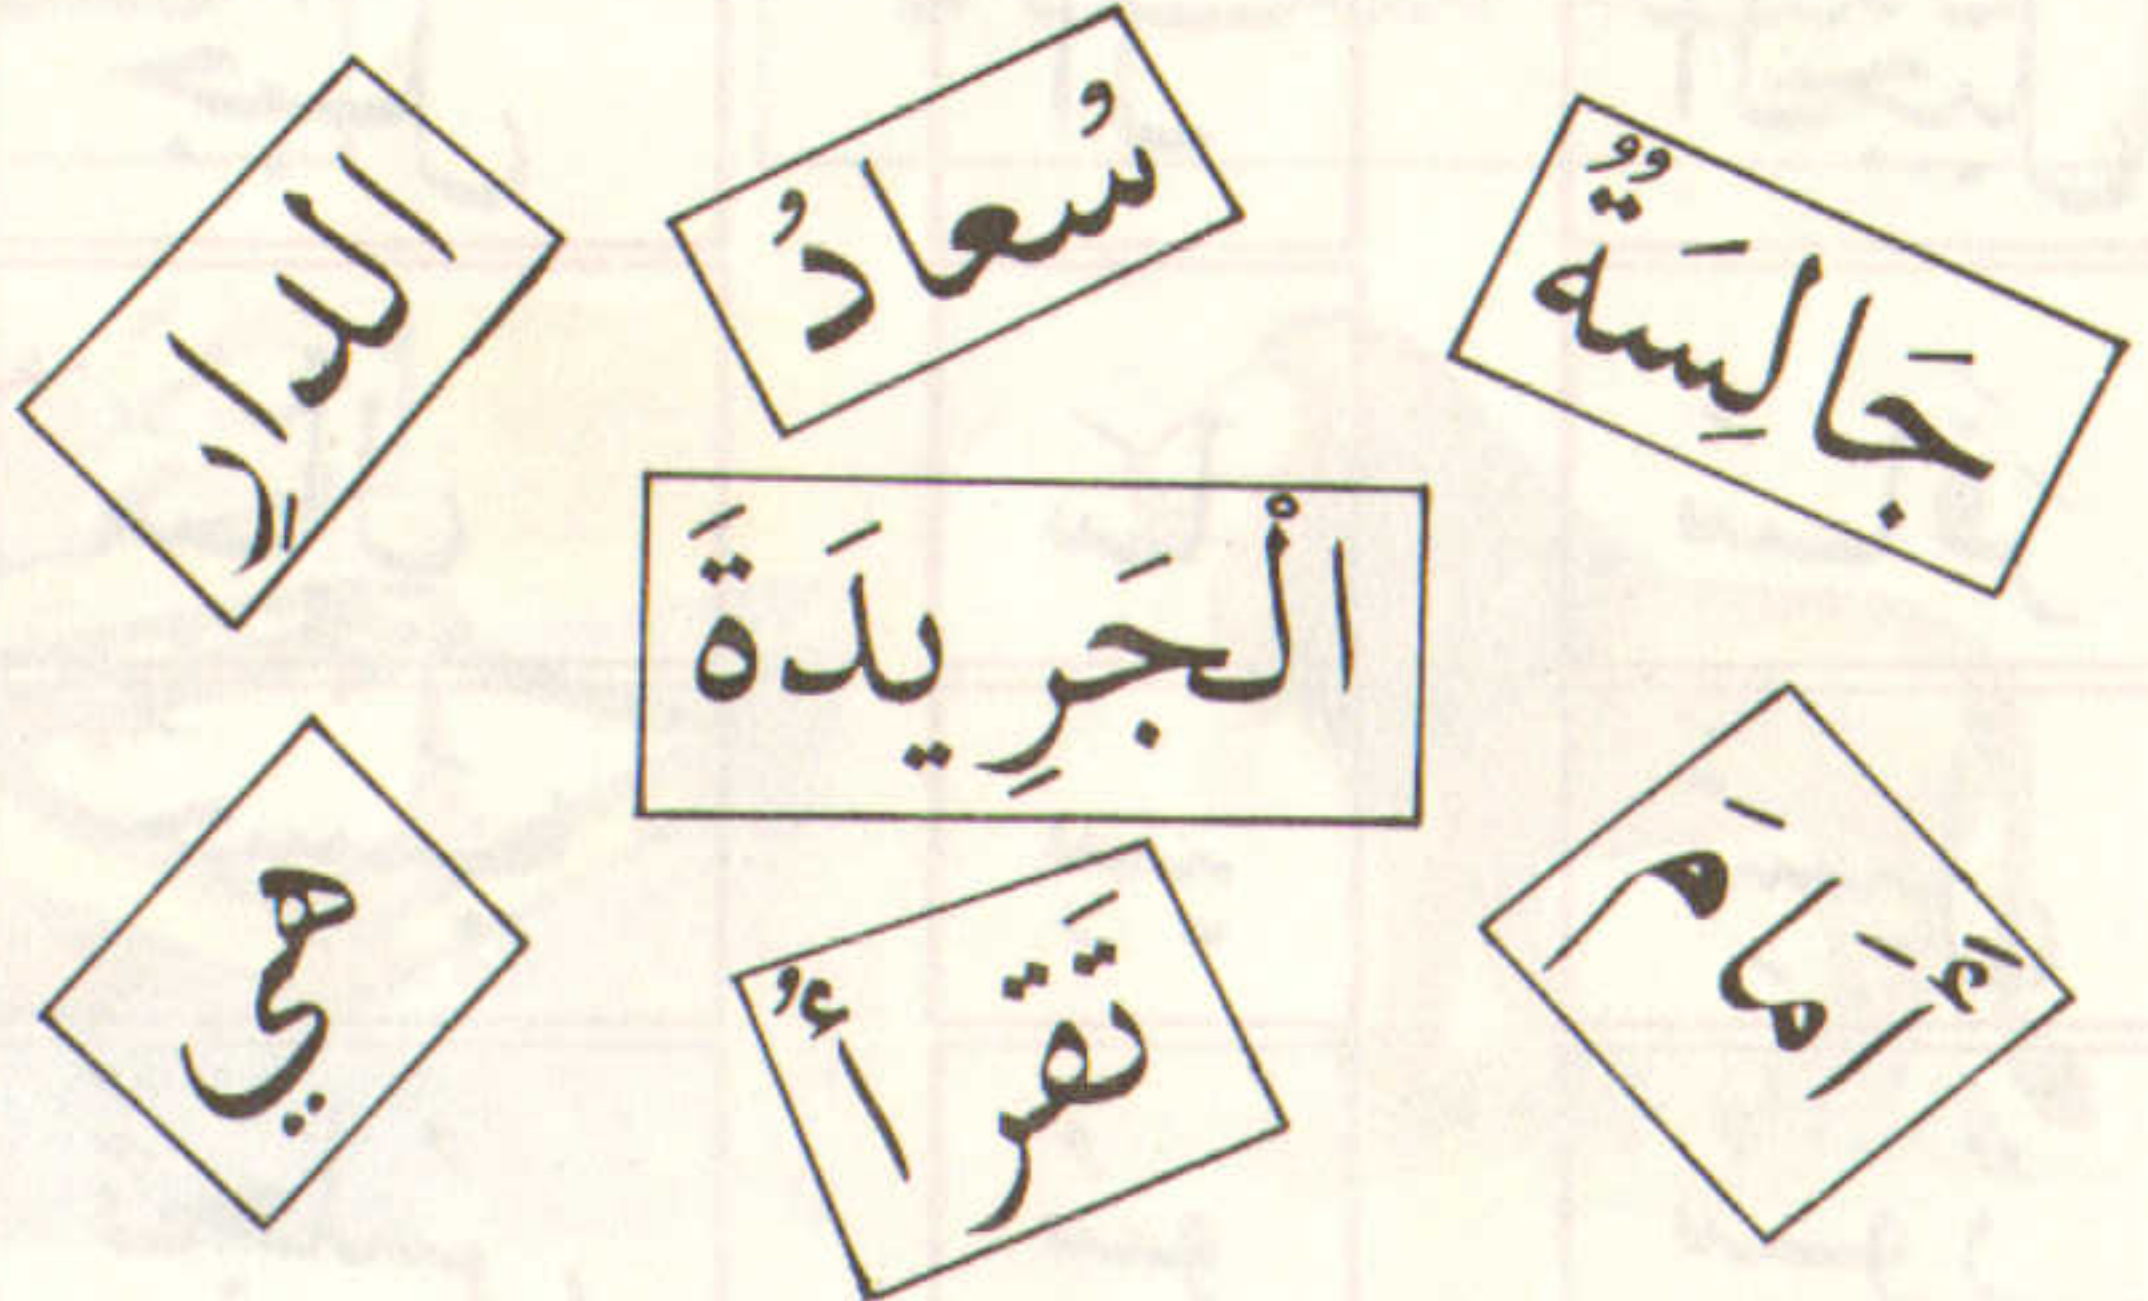 جَالِسَةٌ
سُعادُ
الدارِ
الْجَرِيدَةَ
أَمَامَ
تَقرأُ
هي